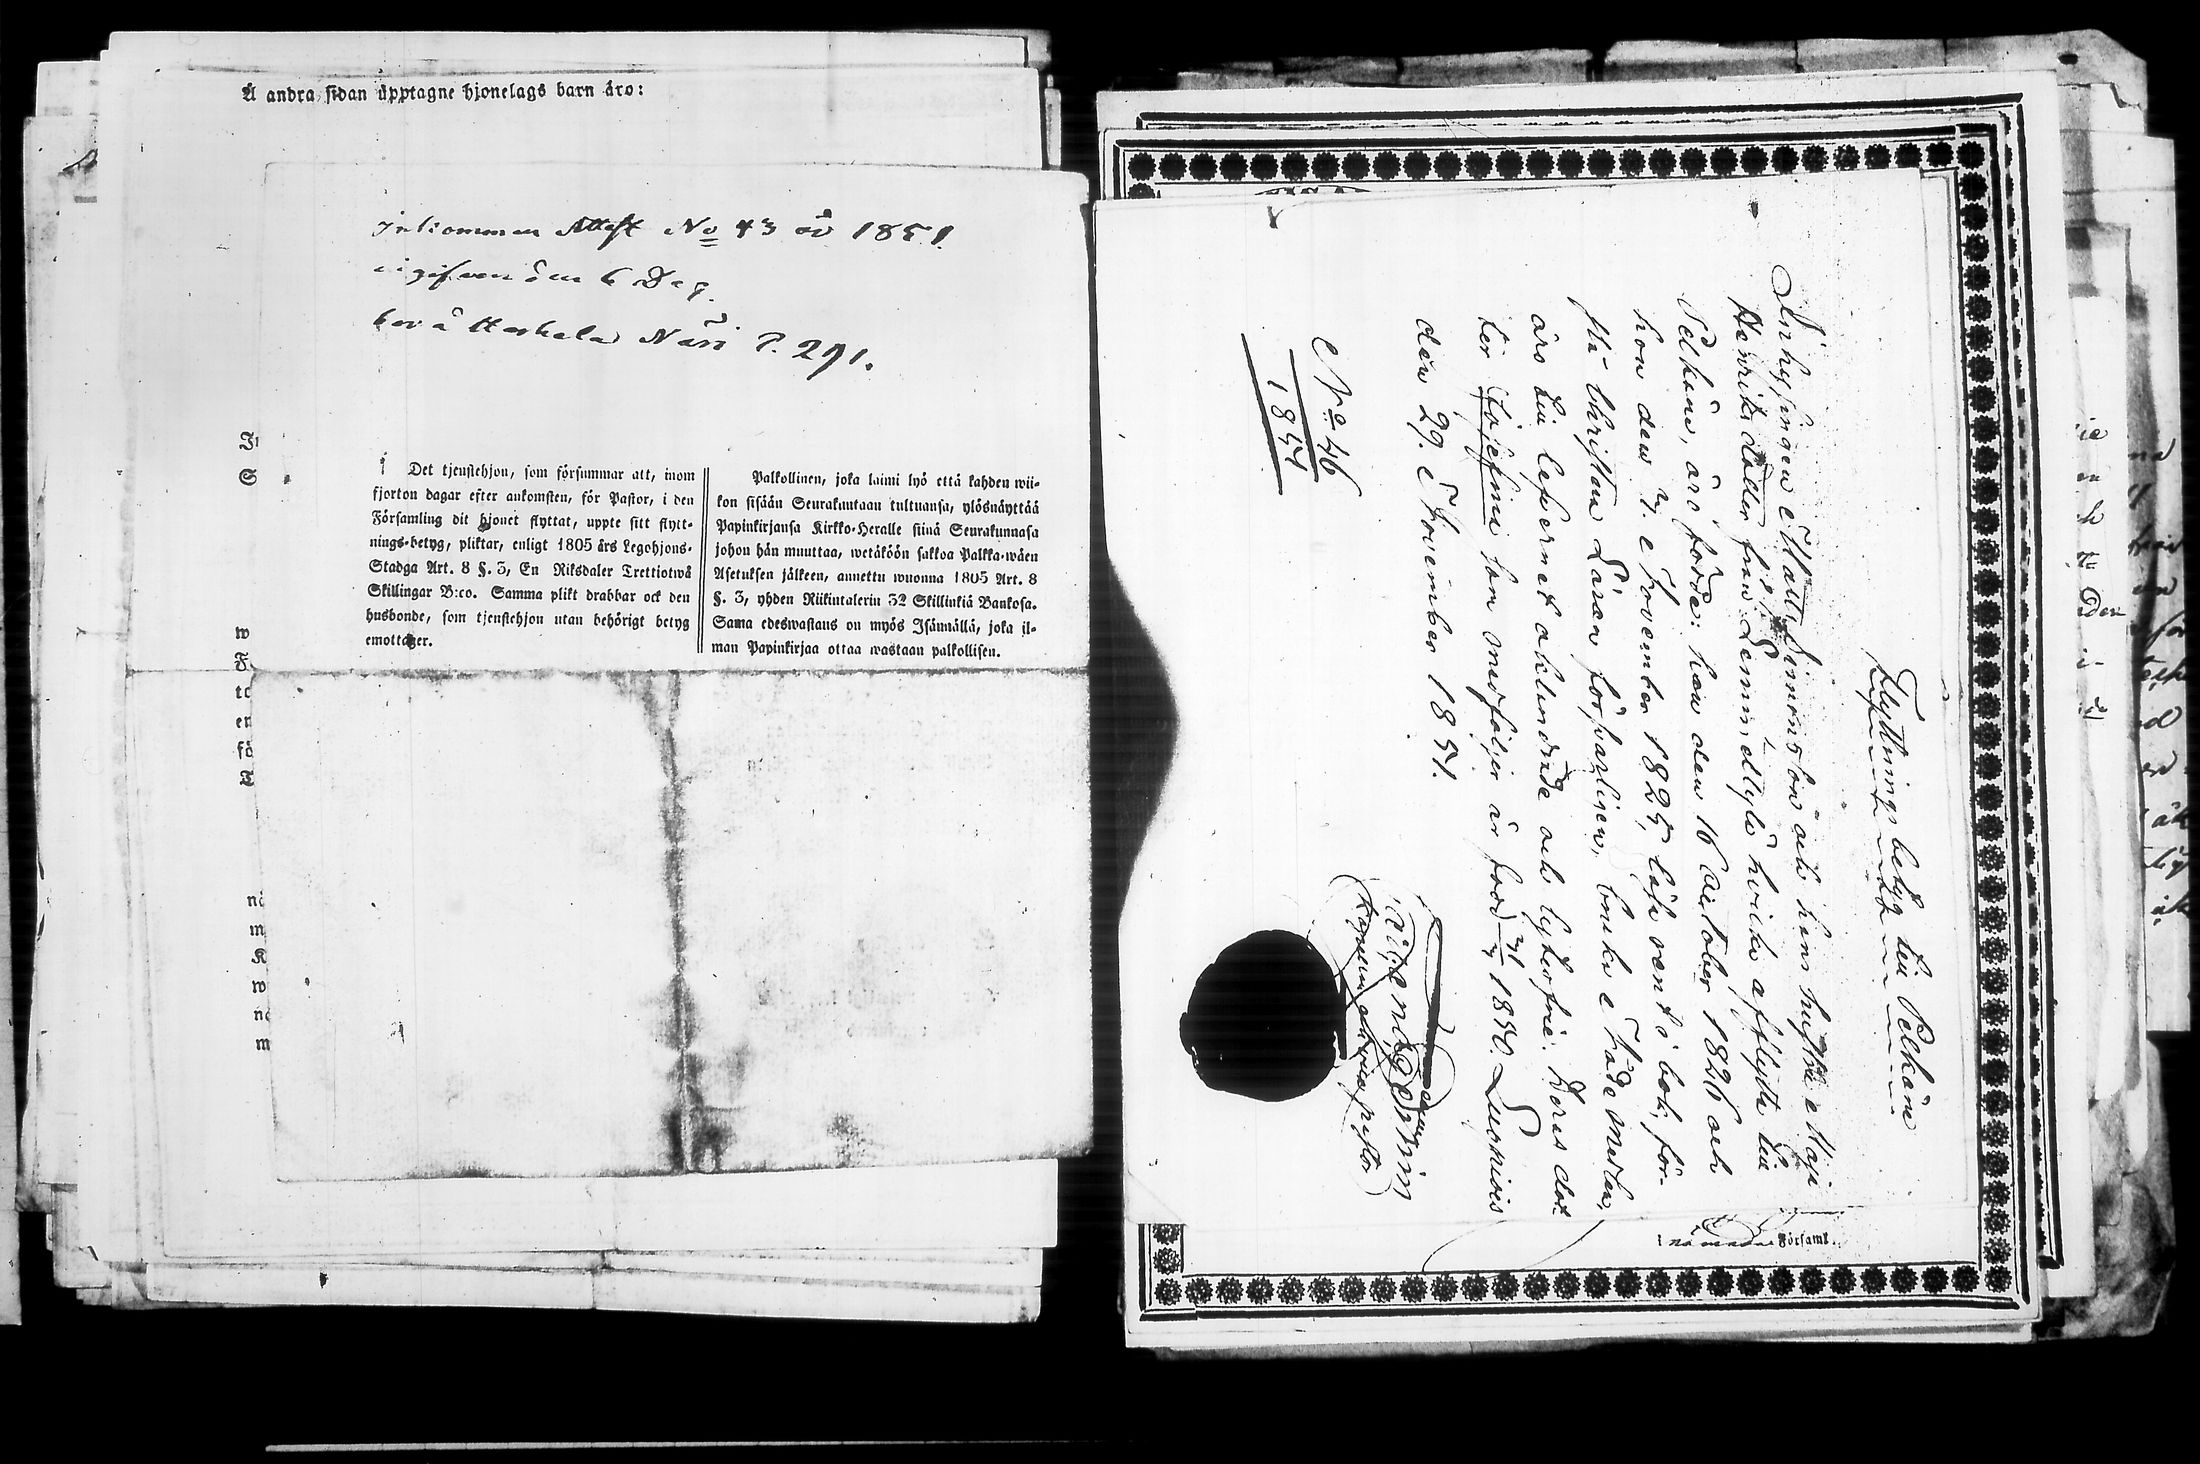 Å andra sidan upptagne hjonelags barn äro:
Inkommen Attest No 43 år 1851.
den 6 Dec.
Näsi P. 291.
Det tjenstehjon, som försummar att, inom
fjorton dagar efter ankomsten, för Pastor, i den
Församling dit hjonet flyttat, uppte sitt flytt-
nings-betyg, pliktar, enligt 1805 års Legohjons-
Stadga Art. 8 §. 3, En Riksdaler Trettiotwå
Skillingar B:co. Samma plikt drabbar ock den
husbonde, som tjenstehjon utan behörigt betyg
emottager.
Palkollinen, joka laimi lyö että kahden wii-
kon sisään Seurakuntaan tultuansa, ylösnäyttää
Papinkirjansa Kirkko-Heralle siinä Seurakunnasa
johon hän muuttaa, wetäköön sakkoa Palkka-wäen
Asetuksen jälkeen, annettu wuonna 1805 Art. 8
§. 3, yhden Riikintalerin 32 Skillinkiä Bankosa.
Sama edeswastaus on myös Isännällä, joka il-
man Papinkirjaa ottaa wastaan palkollisen.
Flyttnings betyg till Pelkäne
Inhysingen Matts Simonsson och hans hustru Maja
Henriksdotter från hvilka afflytta till
Pelkäne, äro födde: han den 16 October 1826 och
hon den 7. November 1825, läsa rent i bok, för-
stå Christna Läran försvarligen, bruka Nådemedlen,
äro till lefvernet oklandrade och lyteslösa. Deras dot-
ter Josefina som medföljer är född 1850. Luopiois
den 29. November 1851.
No 46
1851
i Församl.